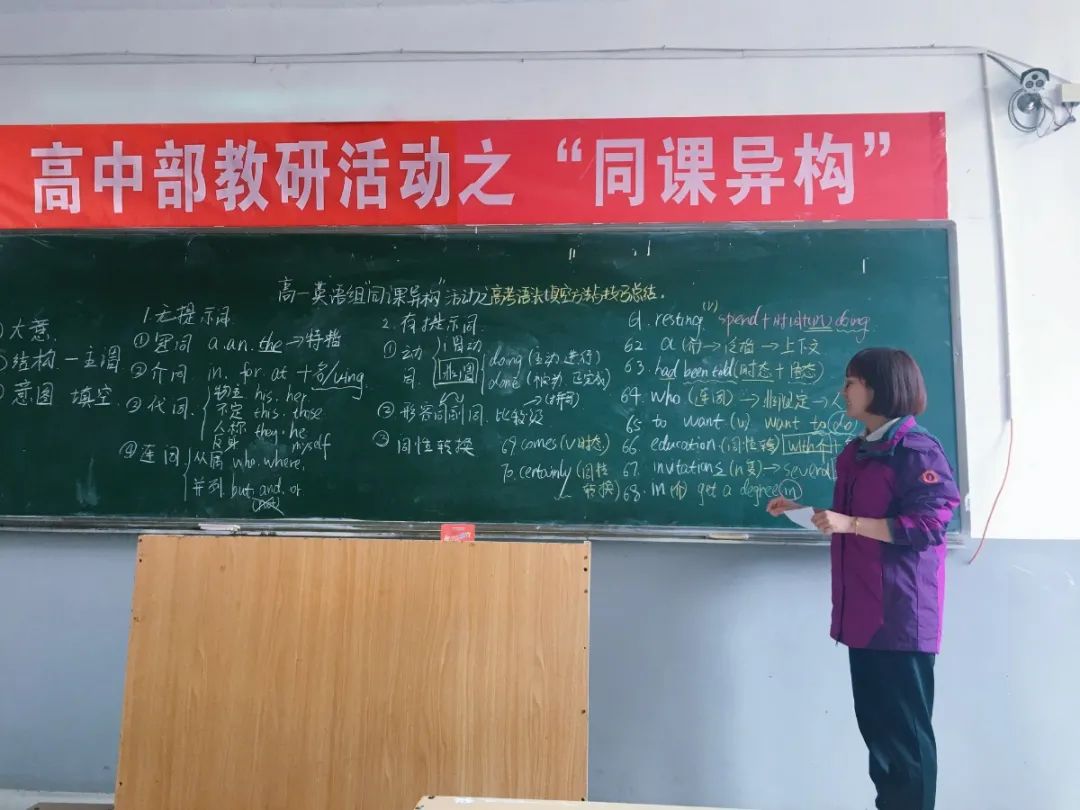 高中部教研活动之“同课异构”
高一英语组"同课异构"活动之高考语法填空方法与技巧总结.
大意.
结构 一 主谓
意图 填空.
1.无提示词.
①冠词 a.an.the→特指
②介词 in. for. at +名/ving.
③代词.
物主 his. her
不定 this. those
人称 they. he.
反身 myself
④连词
从属 who. where,
并列 but. and. or
2. 有提示词.
①动词.
谓动
非谓
doing (主动 进行)
done (被动 完成)
②形容词副词 比较级
③词性转换
61. resting. (v) spend+时间(in) doing.
62. a (冠)→泛指→上下文
63. had been told (时态+语态)
64. who (连词)→非限定→人
65. to want (v) want to do
66. education. (词性转)
67. invitations (n复)→several
68. in (介) get a degree in
69 comes (v时态)
70. certainly (词性转换)